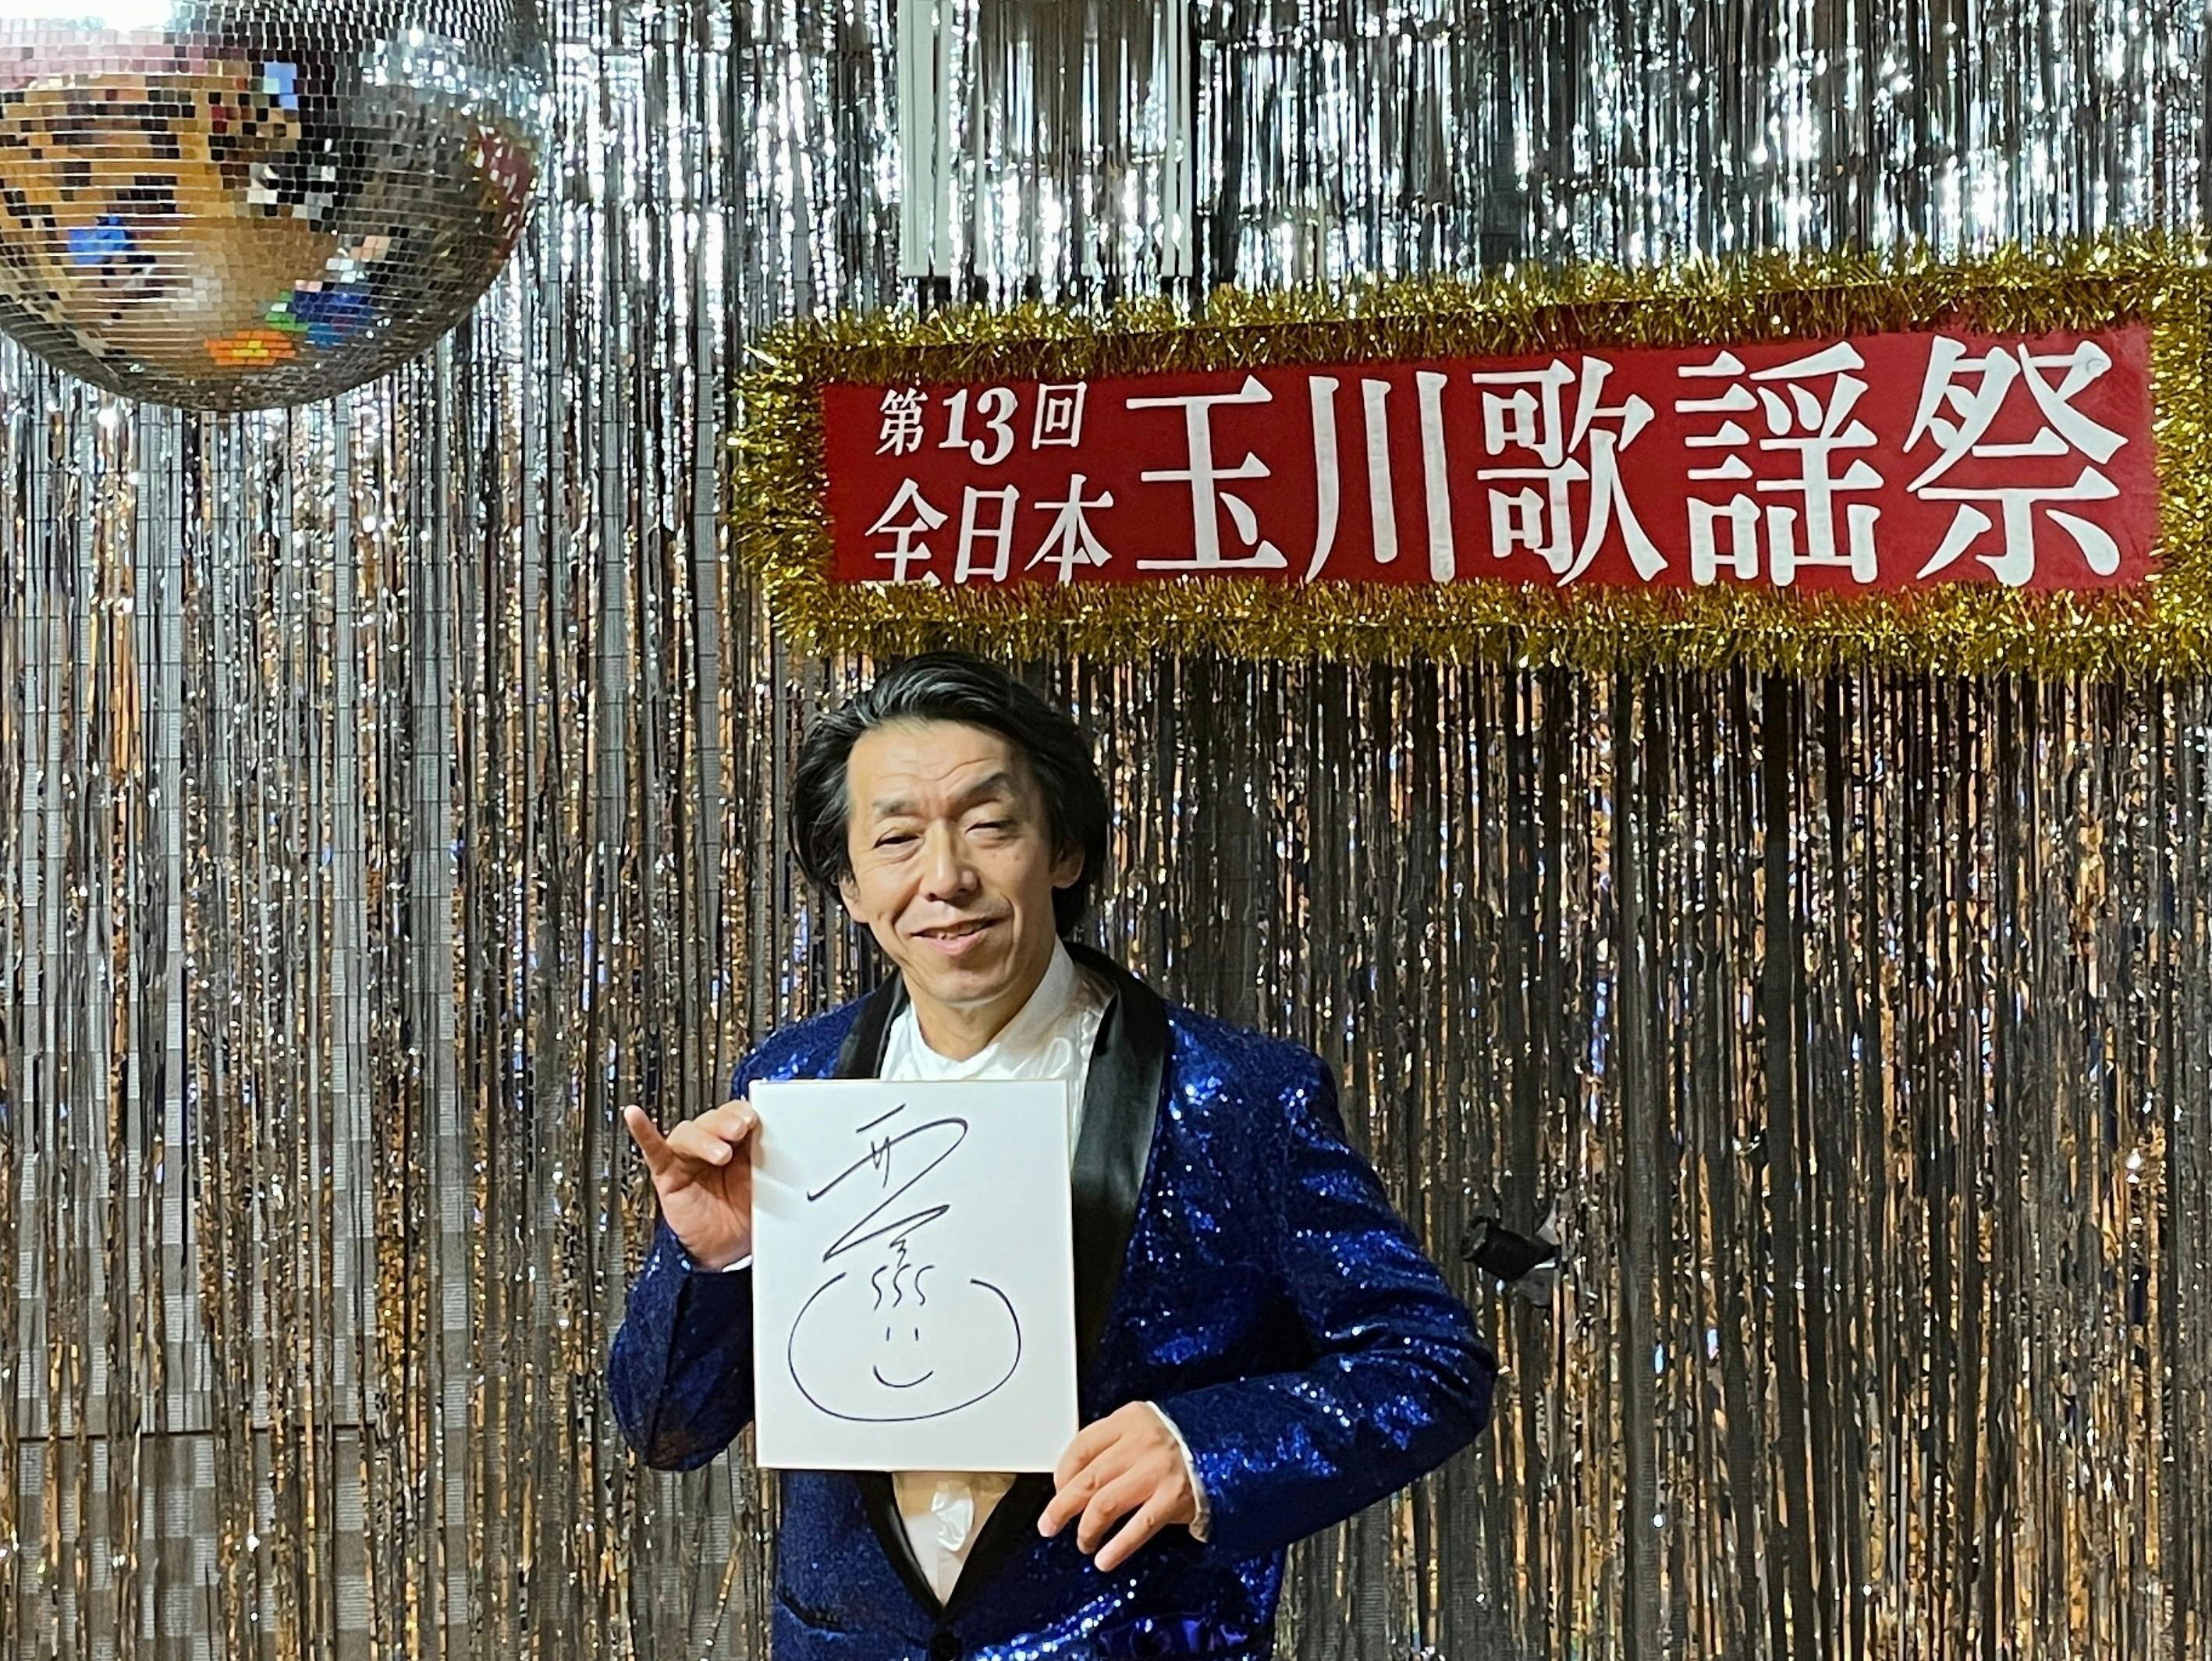 第13回
全日本
玉川歌謡祭